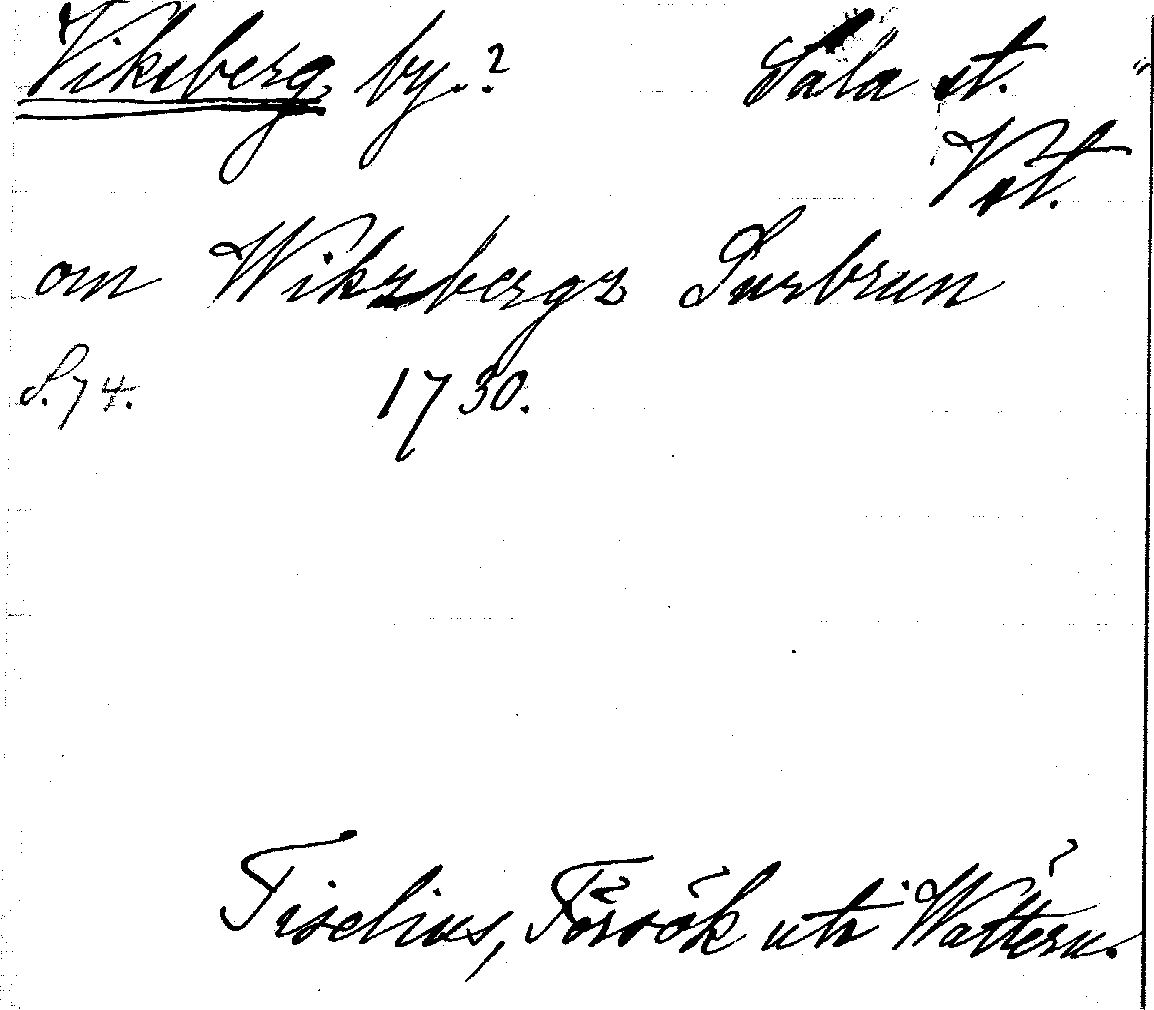 Viksberg by.? Sala st.
Vst.
om Wiksbergs Surbrun
S. 74. 1730.
Tiselius, Försök uti Wattern.